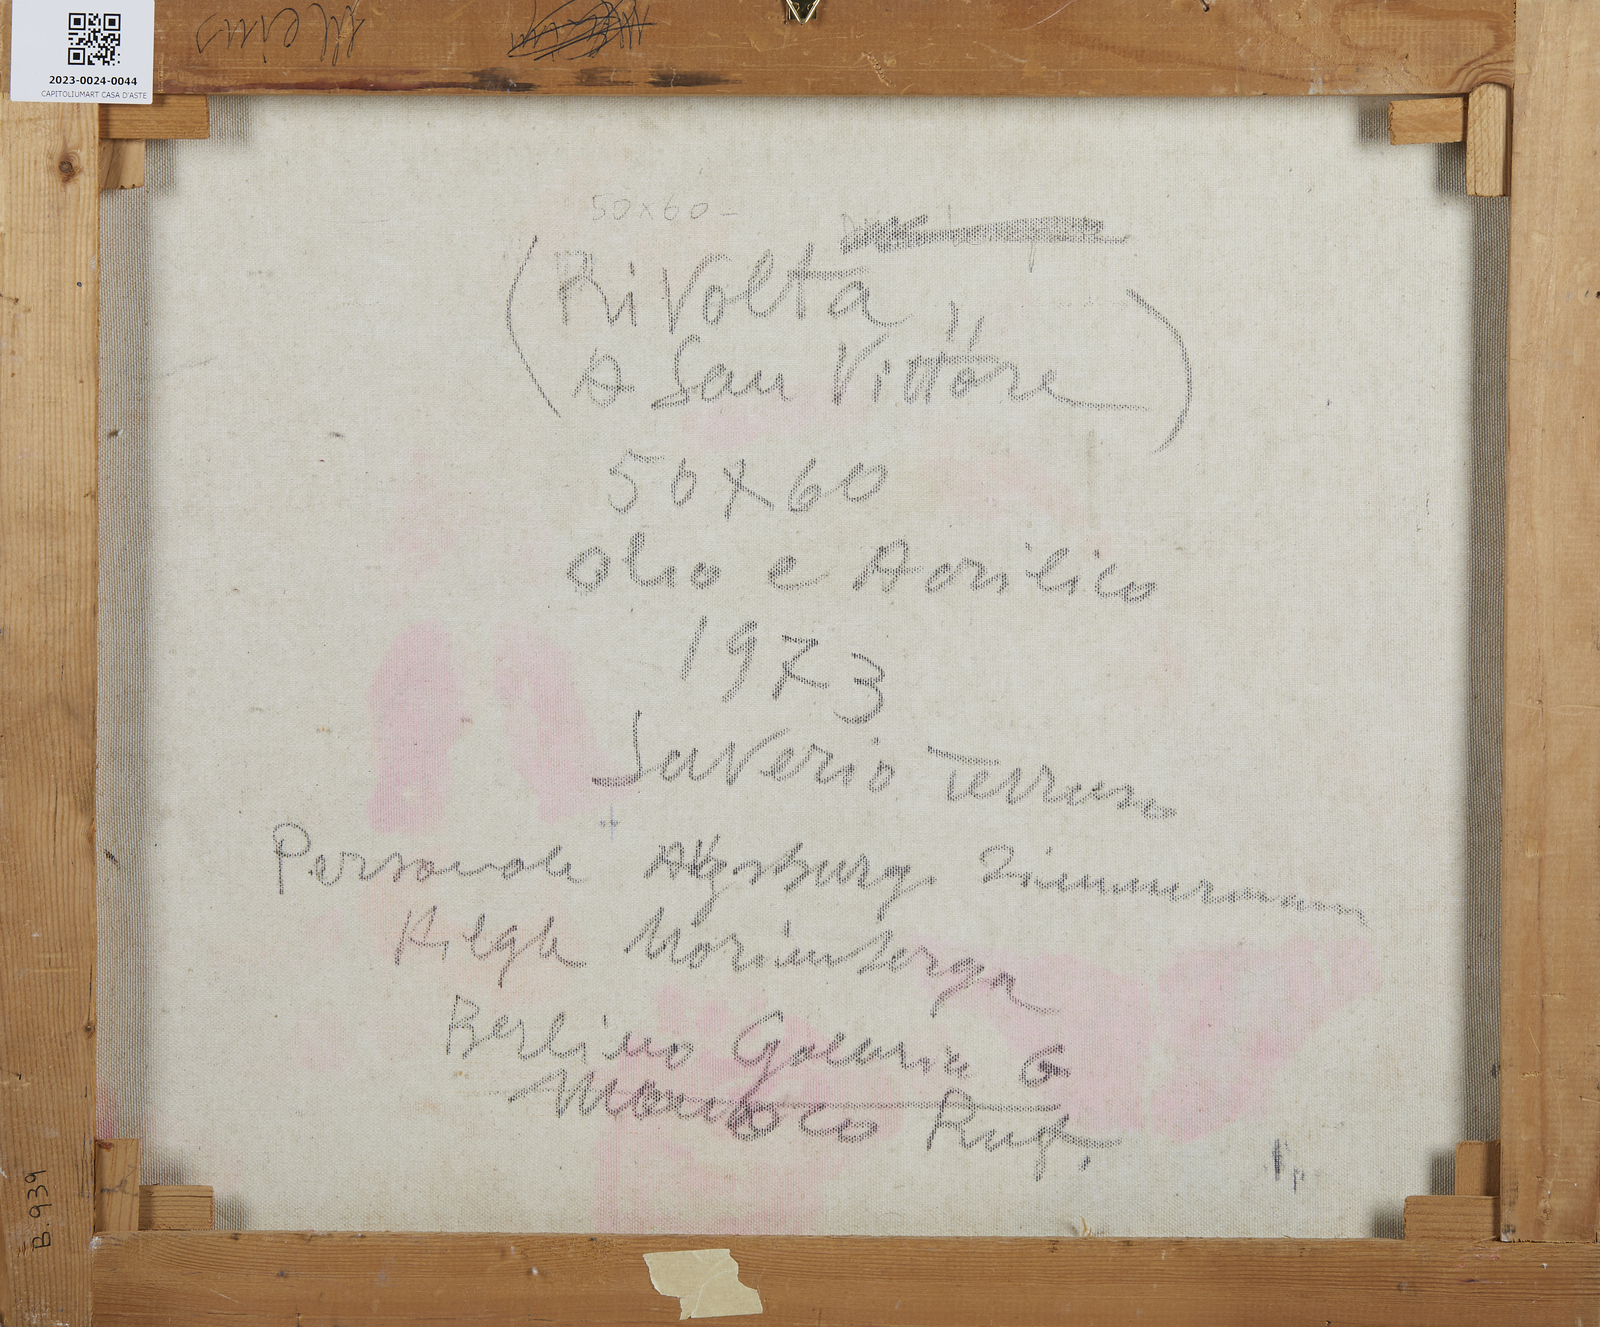 2023-0024-0044
CAPITOLIUMART CASA D'ASTE
50x60-
(Rivolta
A San Vittore)
50x60
olio e Acrilico
1973
Saverio Terruso
Personale Augsburg. Zimmermann
Norimberga
Berlino Galerie G
B.939